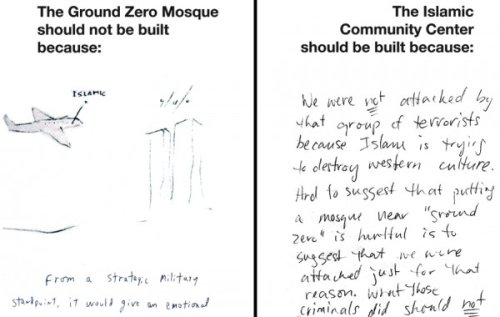 The Ground Zero Mosque
should not be built
because:
ISLAMIC
9/11/01
From a strategic military
standpoint, it would give an emotional
The Islamic
Community Center
should be built because:
We were not attacked by
that group of terrorists
because Islam is trying
to destroy western culture.
And to suggest that putting
a mosque near "ground
zero" is hurtful is to
suggest that we were
attacked just for that
reason. What those
criminals did should not